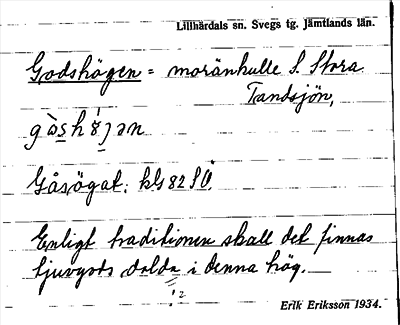 Lillhärdals sn. Svegs tg. Jämtlands län.
Godshögen = moränkulle S. Stora
Tandsjön,
Gåsögat. kG 82 SÖ.
Enligt traditionen skall det finnas
ljuvgods dolda i denna hög.
Erik Eriksson 1934.